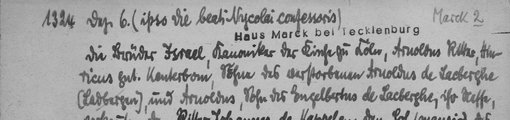 1324 Dez 6. (ipso die beati Nycolai confessoris) Marck 2
Haus Marck bei Tecklenburg
die Brüder Israel, Kanoniker der Kirche zu Köln, Arnoldus Ritter, Hin-
ricus gnt. Keuterbom, Söhne des verstorbenen Arnoldus de Lacberghe
(Ladbergen), und Arnoldus, Sohn des Engelbertus de Lacberghe, ihr Neffe,
Ritter Johannes de